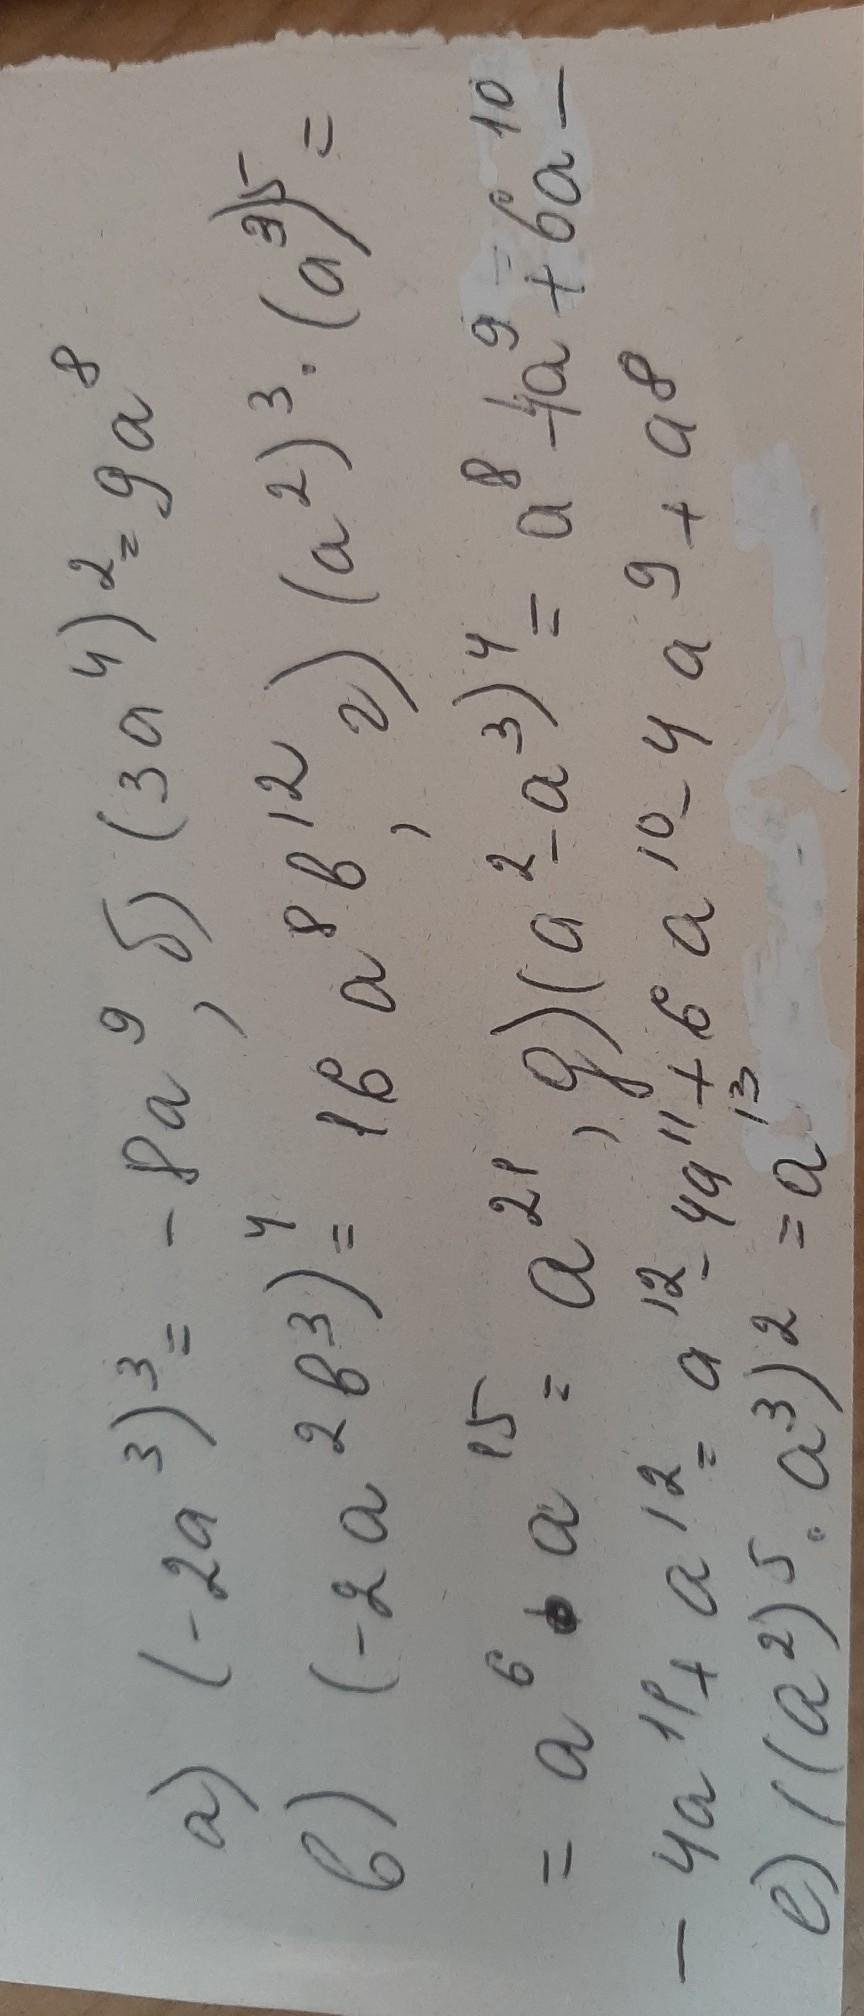 а) (-2a³)³ = -8a⁹, б) (3a⁴)² = 9a⁸
в) (-2a²b³)⁴ = 16a⁸b¹², г) (a²)³ · (a³)⁵ =
= a⁶ · a¹⁵ = a²¹, д) (a² - a³)⁴ = a⁸ - 4a⁹ + 6a¹⁰ -
- 4a¹¹ + a¹² = a¹² - 4a¹¹ + 6a¹⁰ - 4a⁹ + a⁸
е) ((a²)⁵ · a³)² = a¹³